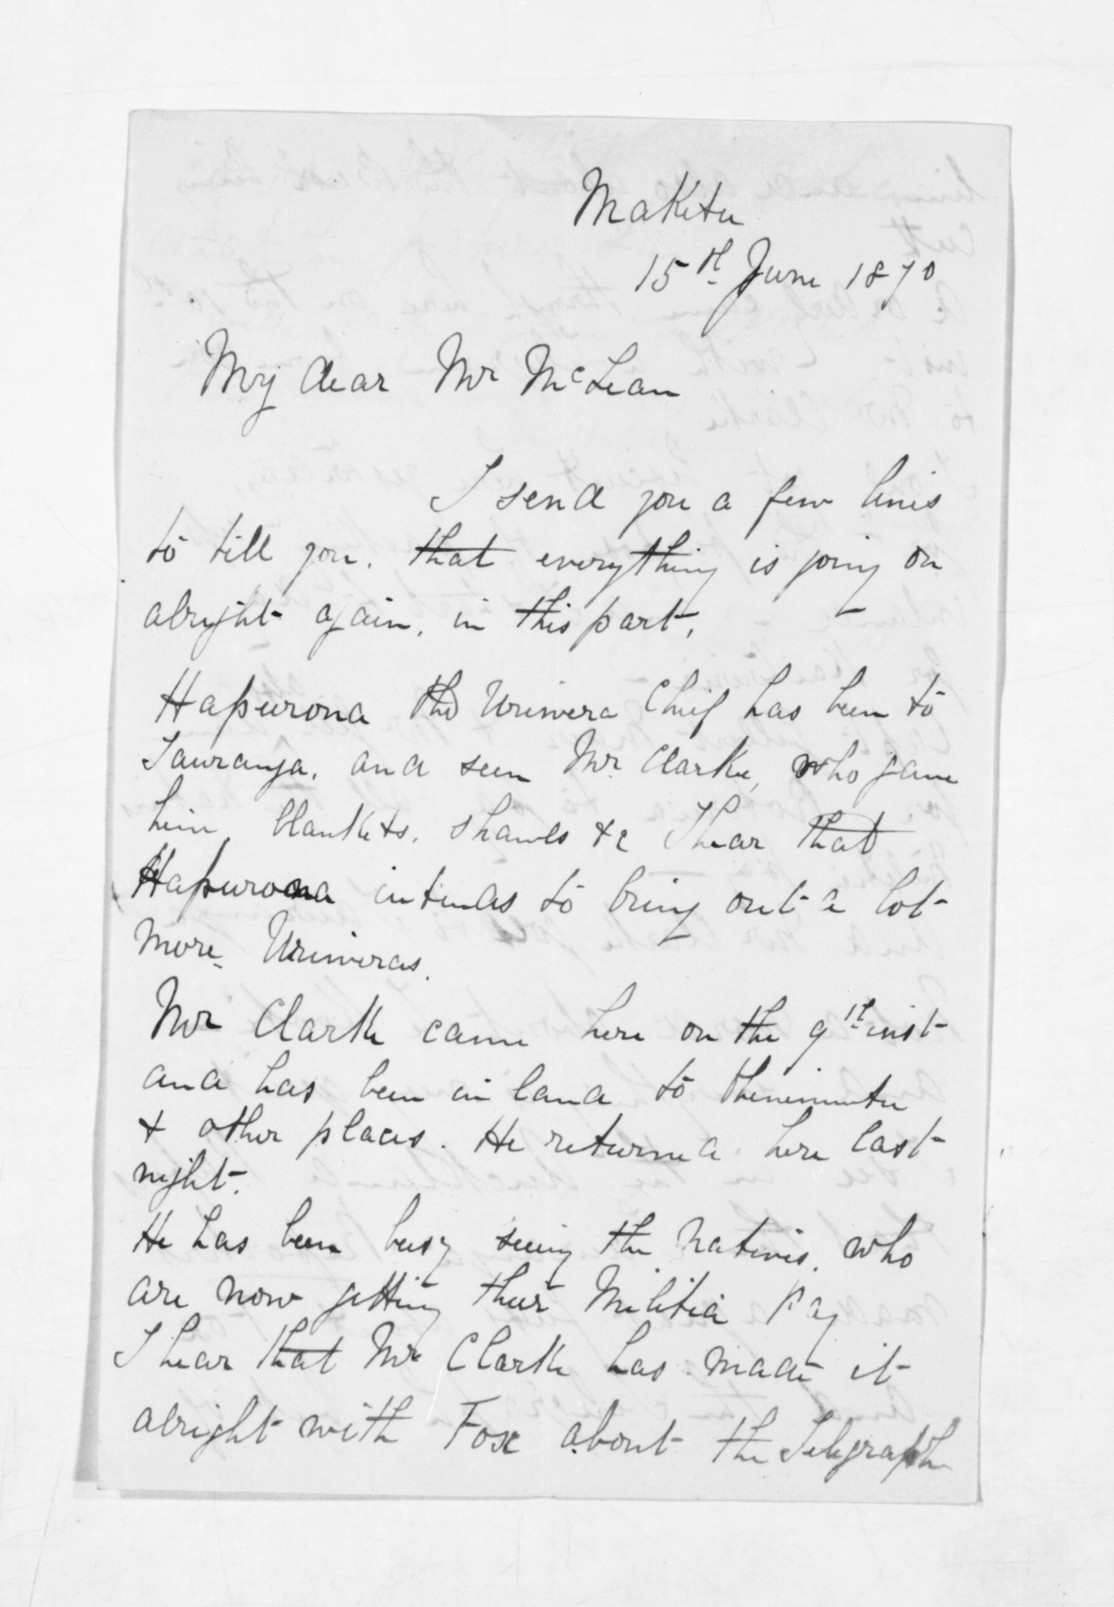 Maketu
15th June 1870
My dear Mr McLean
I send you a few lines
to tell you. that everything is going on
alright again, in this part.
Hapurona the Uriwera Chief has been to
Tauranga, and seen Mr. Clarke, who gave
him blankets, shawls &c I hear that
Hapurona intends to bring out a lot
more Uriweras.
Mr Clarke came here on the 9th inst
and has been in land to Ohinemutu
& other places. He returned here last
night.
He has been busy seeing the Natives, who
are now getting their Militia Pay
I hear that Mr Clarke has made it
alright with Fox about the Telegraph